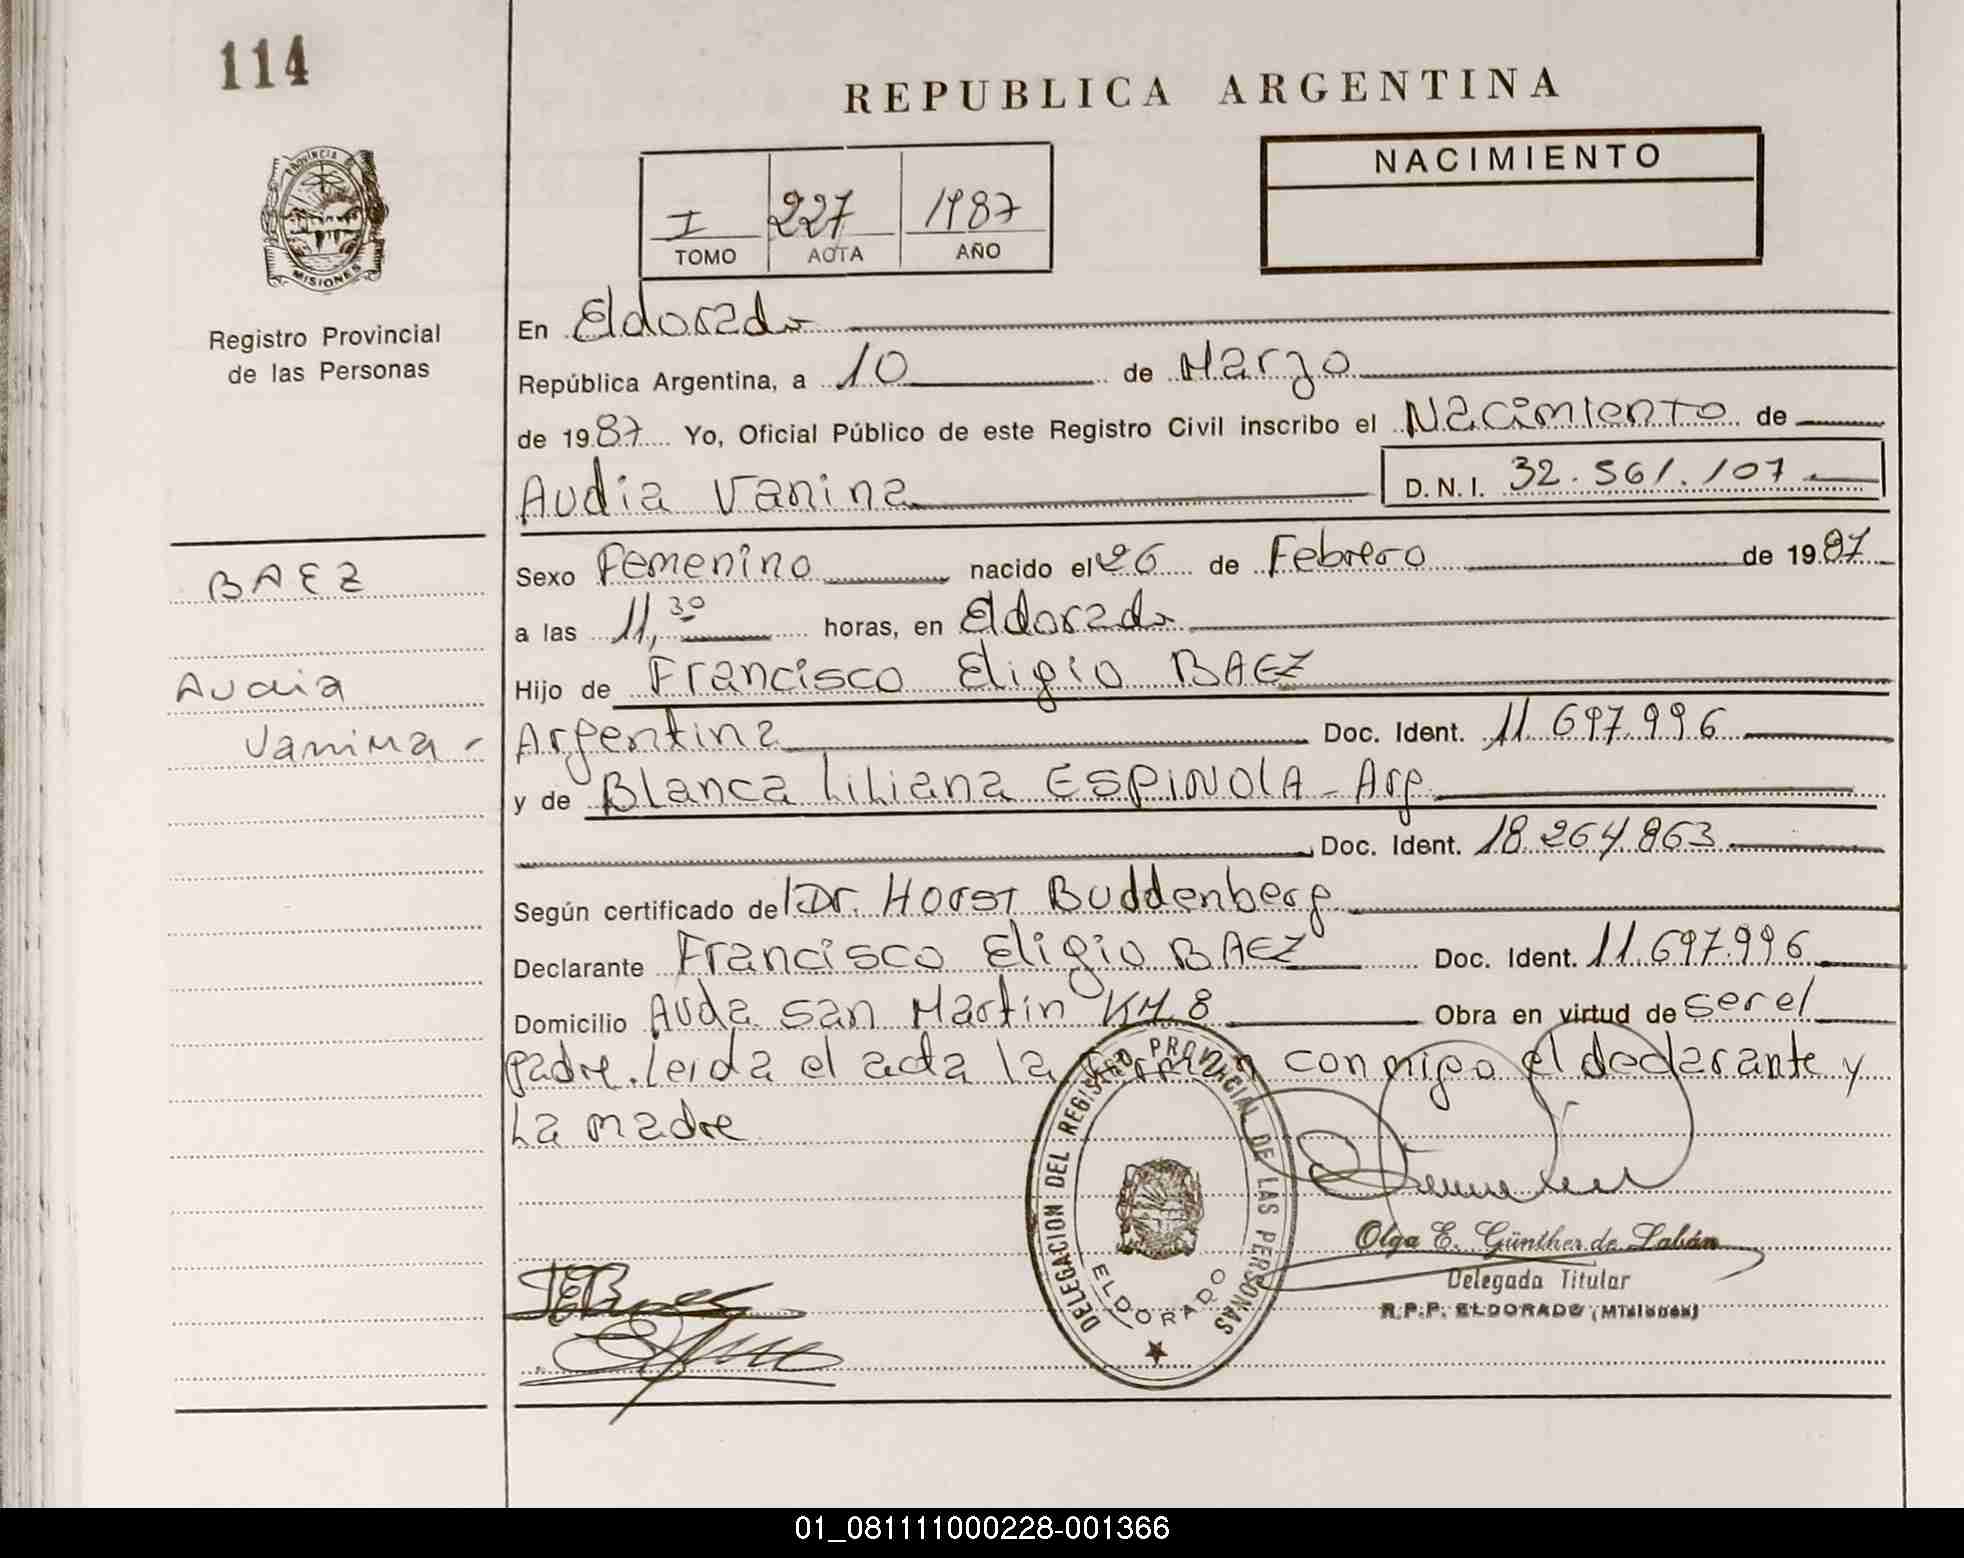 114
REPUBLICA ARGENTINA
PROVINCIA DE
MISIONES
I 227 1987
TOMO ACTA AÑO
NACIMIENTO
Registro Provincial
de las Personas
En Eldorado
República Argentina, a 10 de Marzo
de 1987 Yo, Oficial Público de este Registro Civil inscribo el Nacimiento de
Audia Vanina D.N.I. 32.561.107
BAEZ
Audia
Vanina
Sexo Femenino nacido el 26 de Febrero de 1987
a las 11,30 horas, en Eldorado
Hijo de Francisco Eligio BAEZ
Argentina Doc. Ident. 11.697.996
y de Blanca Liliana ESPINOLA - Arg
Doc. Ident. 18.264.863
Según certificado del Dr. Horst Buddenberg
Declarante Francisco Eligio BAEZ Doc. Ident. 11.697.996
Domicilio Avda San Martin KM. 8 Obra en virtud de ser el
padre. Leida el acta la firman conmigo el declarante y
La madre
DELEGACION DEL REGISTRO PROVINCIAL DE LAS PERSONAS
ELDORADO
Olga E. Günther de Labán
Delegada Titular
R.P.P. ELDORADO (Misiones)
01_081111000228-001366